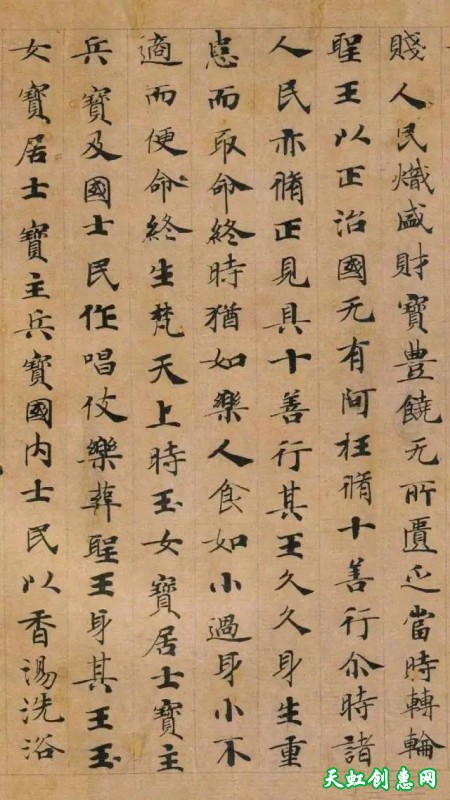 賤人民熾盛財寶豊饒无所匱乏當時轉輪
聖王以正治國无有阿枉脩十善行尒時諸
人民亦脩正見具十善行其王久久身生重
患而取命終時猶如樂人食如小過身小不
適而便命終生梵天上時玉女寶居士寶主
兵寶及國士民作唱伎樂葬聖王身其王玉
女寶居士寶主兵寶國内士民以香湯洗浴
天虹创惠网